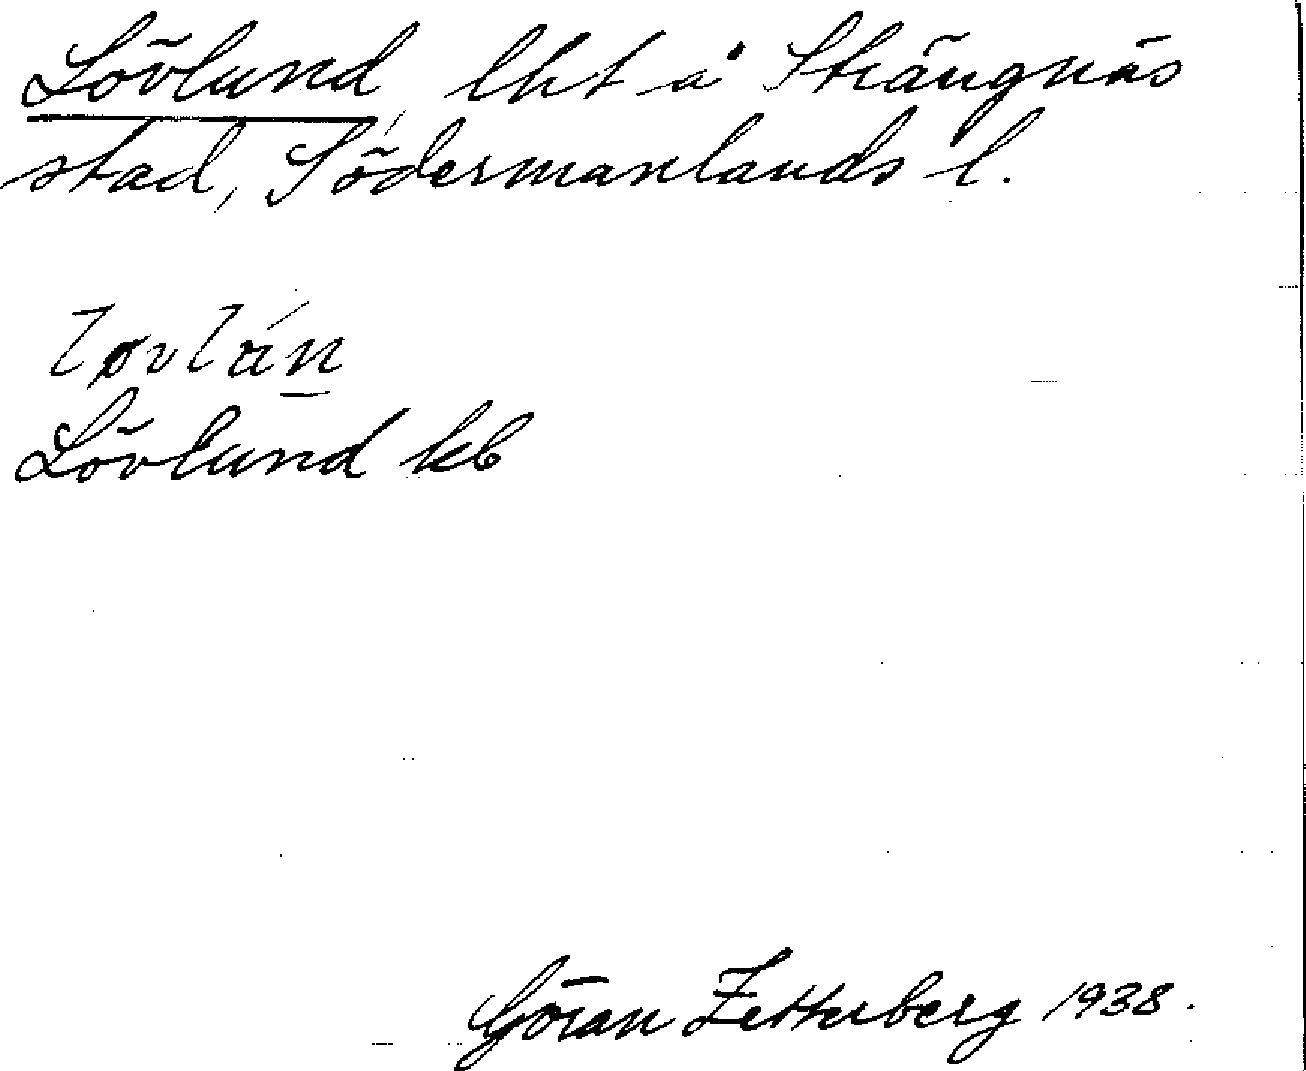 Lövlund, lht å Strängnäs
stad, Södermanlands l.
Lövlund kb
Göran Zetterberg 1938.